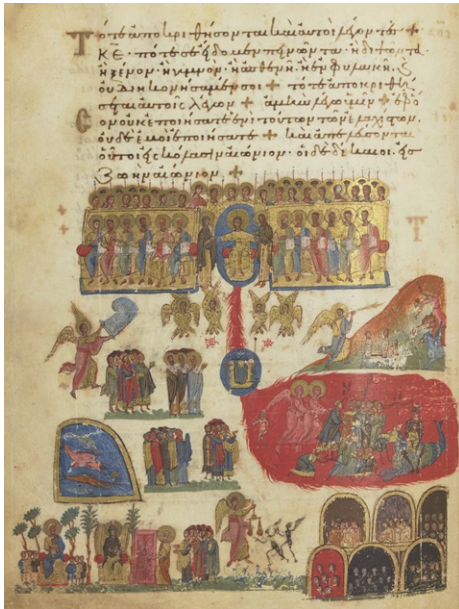 Τότε ἀποκριθήσονται καὶ αὐτοὶ λέγοντες +
ΚΕ· πότε σε εἴδομεν πεινῶντα· ἢ διψῶντα
ἢ ξένον· ἢ γυμνὸν· ἢ ἀσθενῆ· ἢ ἐν φυλακῆ· ϗ
οὐ διηκονήσαμέν σοι + τότε ἀποκριθή
σεται αὐτοῖς λέγων + ἀμὴν λέγω ὑμῖν + ἐφ' ὅ
σον οὐκ ἐποιήσατε ἑνὶ τούτων τῶν ἐλαχίστων.
οὐδὲ ἐμοὶ ἐποιήσατε + καὶ ἀπελεύσονται
οὗτοι εἰς κόλασιν αἰώνιον· οἱ δὲ δίκαιοι εἰς
ζωὴν αἰώνιον +